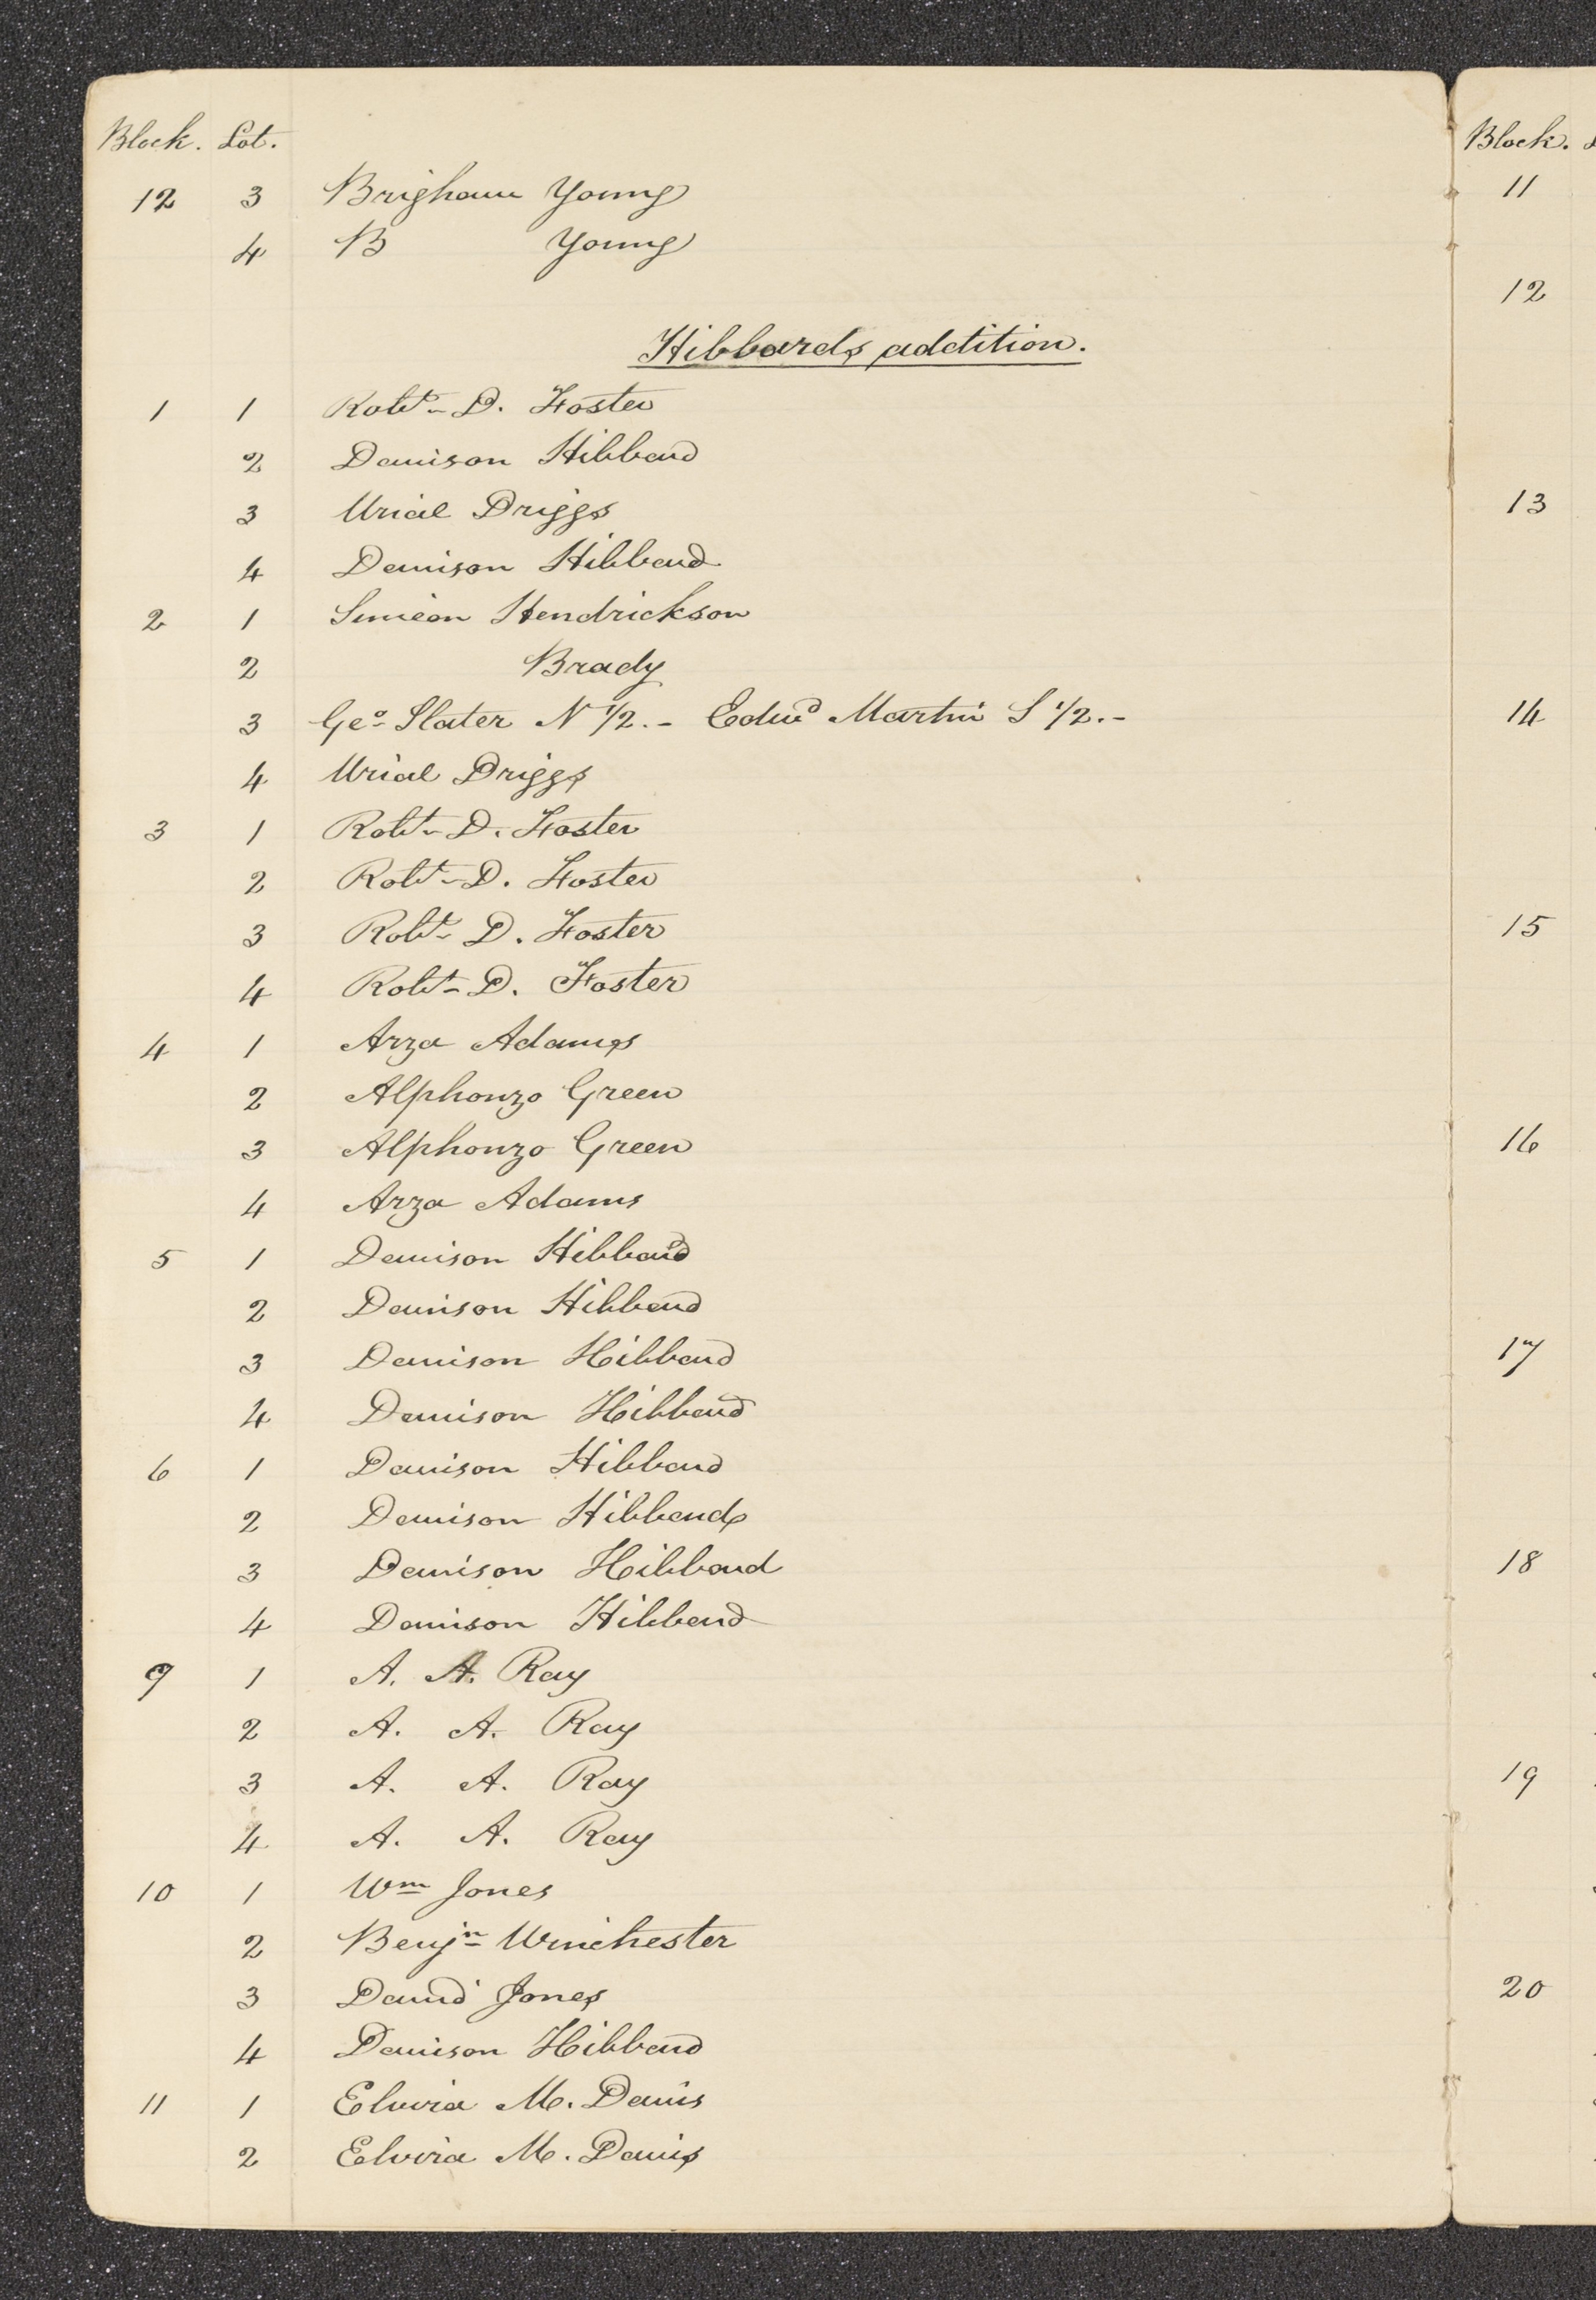 Block. Lot.
12 3 Brigham Young
4 B Young
Hibbards addition.
1 1 Robt. D. Foster
2 Denison Hibbard
3 Urial Driggs
4 Denison Hibbard
2 1 Simeon Hendrickson
2 Brady
3 Geo Slater N 1/2. - Edwd Martin S 1/2. -
4 Urial Driggs
3 1 Robt. D. Foster
2 Robt. D. Foster
3 Robt. D. Foster
4 Robt. D. Foster
4 1 Arza Adams
2 Alphonzo Green
3 Alphonzo Green
4 Arza Adams
5 1 Denison Hibbard
2 Denison Hibbard
3 Denison Hibbard
4 Denison Hibbard
6 1 Denison Hibbard
2 Denison Hibbard
3 Denison Hibbard
4 Denison Hibbard
9 1 A. A. Ray
2 A. A. Ray
3 A. A. Ray
4 A. A. Ray
10 1 Wm Jones
2 Benjn Winchester
3 David Jones
4 Denison Hibbard
11 1 Elvira M. Davis
2 Elvira M. Davis
Block.
11
12
13
14
15
16
17
18
19
20